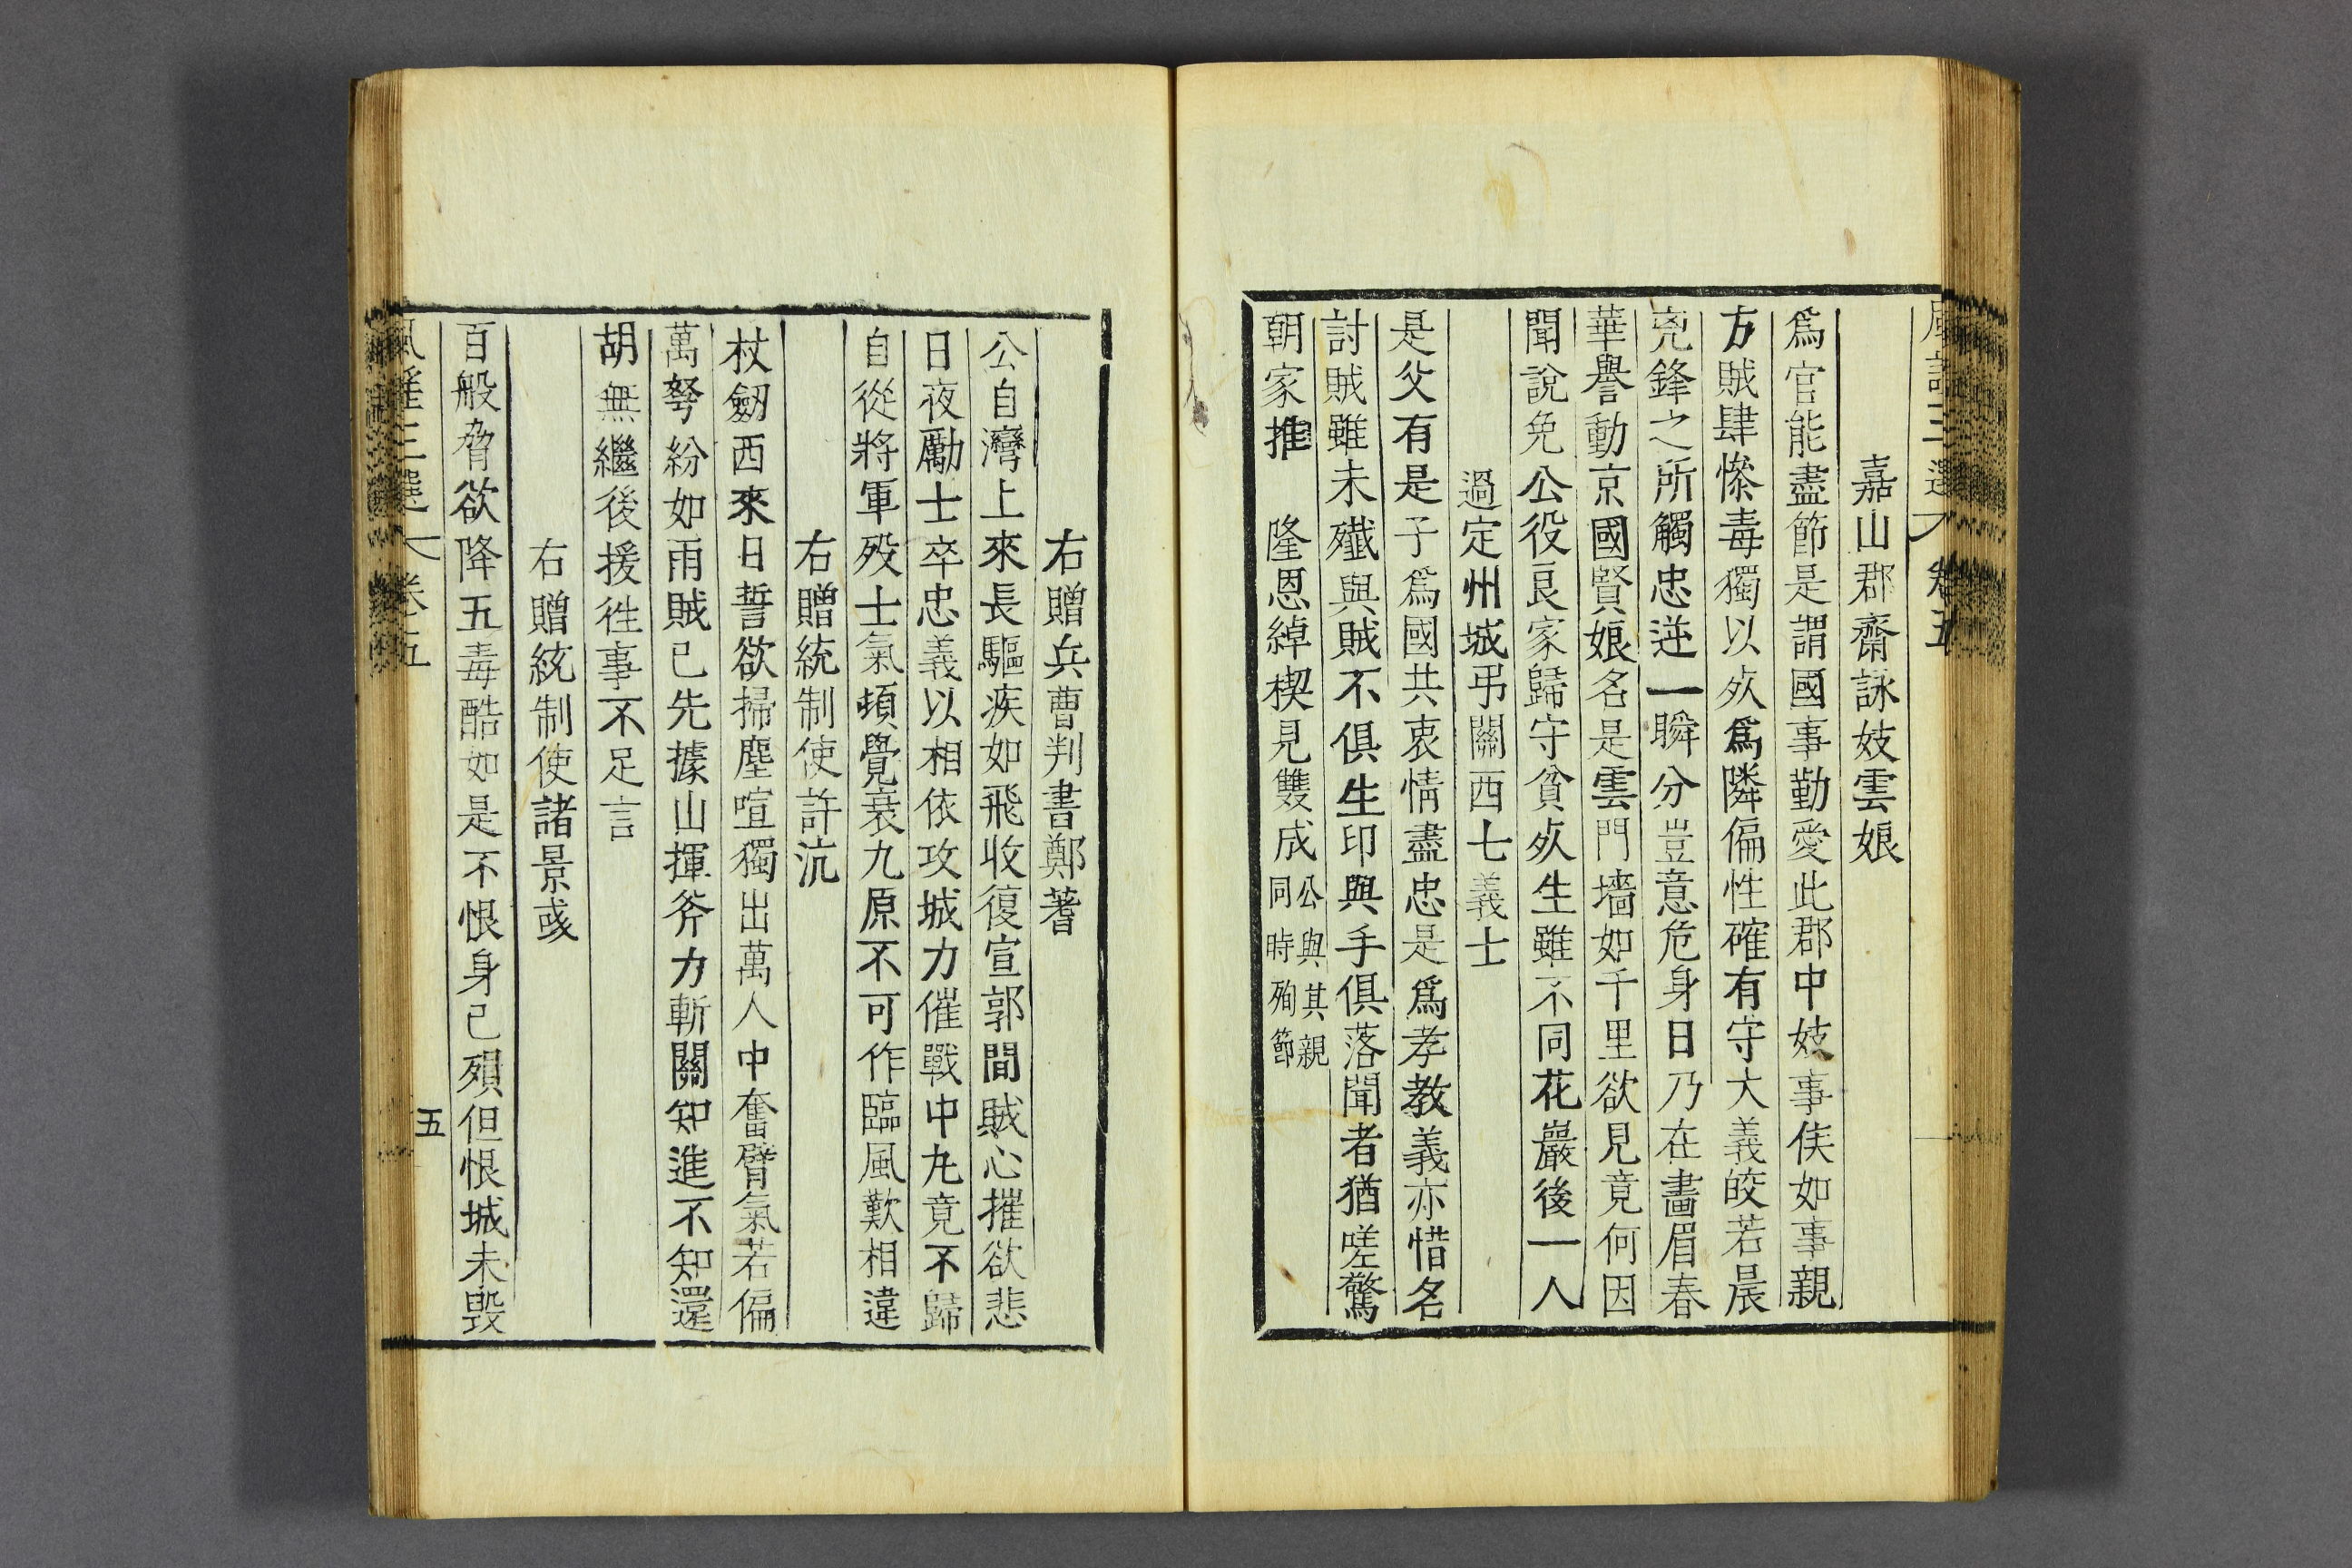 嘉山郡齋詠妓雲娘
爲官能盡節是謂國事勤愛此郡中妓事侯如事親
方賊肆慘毒獨以死爲隣偏性確有守大義皎若晨
兇鋒之所觸忠逆一瞬分豈意危身日乃在畵眉春
華譽動京國賢娘名是雲門墻如千里欲見竟何因
聞說免公役良家歸守貧死生雖不同花巖後一人
過定州城弔關西七義士
是父有是子爲國共衷情盡忠是爲孝教義亦惜名
討賊雖未殲與賊不俱生印與手俱落聞者猶嗟驚
朝家推 隆恩綽楔見雙成公與其親同時殉節
右贈兵曹判書鄭蓍
公自灣上來長驅疾如飛收復宣郭間賊心摧欲悲
日夜勵士卒忠義以相依攻城力催戰中丸竟不歸
自從將軍歿士氣頓覺衰九原不可作臨風歎相違
右贈統制使許沆
杖劒西來日誓欲掃塵喧獨出萬人中奮臂氣若偏
萬弩紛如雨賊已先據山揮斧力斬關知進不知還
胡無繼後援徃事不足言
右贈統制使諸景彧
百般脅欲降五毒酷如是不恨身已殞但恨城未毁
風雅三選 卷五
五